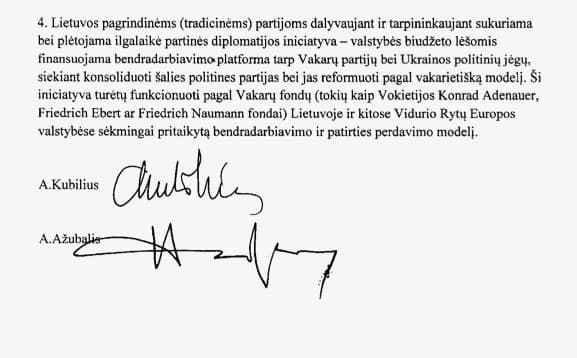 4. Lietuvos pagrindinėms (tradicinėms) partijoms dalyvaujant ir tarpininkaujant sukuriama
bei plėtojama ilgalaikė partinės diplomatijos iniciatyva – valstybės biudžeto lėšomis
finansuojama bendradarbiavimo platforma tarp Vakarų partijų bei Ukrainos politinių jėgų,
siekiant konsoliduoti šalies politines partijas bei jas reformuoti pagal vakarietišką modelį. Ši
iniciatyva turėtų funkcionuoti pagal Vakarų fondų (tokių kaip Vokietijos Konrad Adenauer,
Friedrich Ebert ar Friedrich Naumann fondai) Lietuvoje ir kitose Vidurio Rytų Europos
valstybėse sėkmingai pritaikytą bendradarbiavimo ir patirties perdavimo modelį.
A.Kubilius
A.Ažubalis